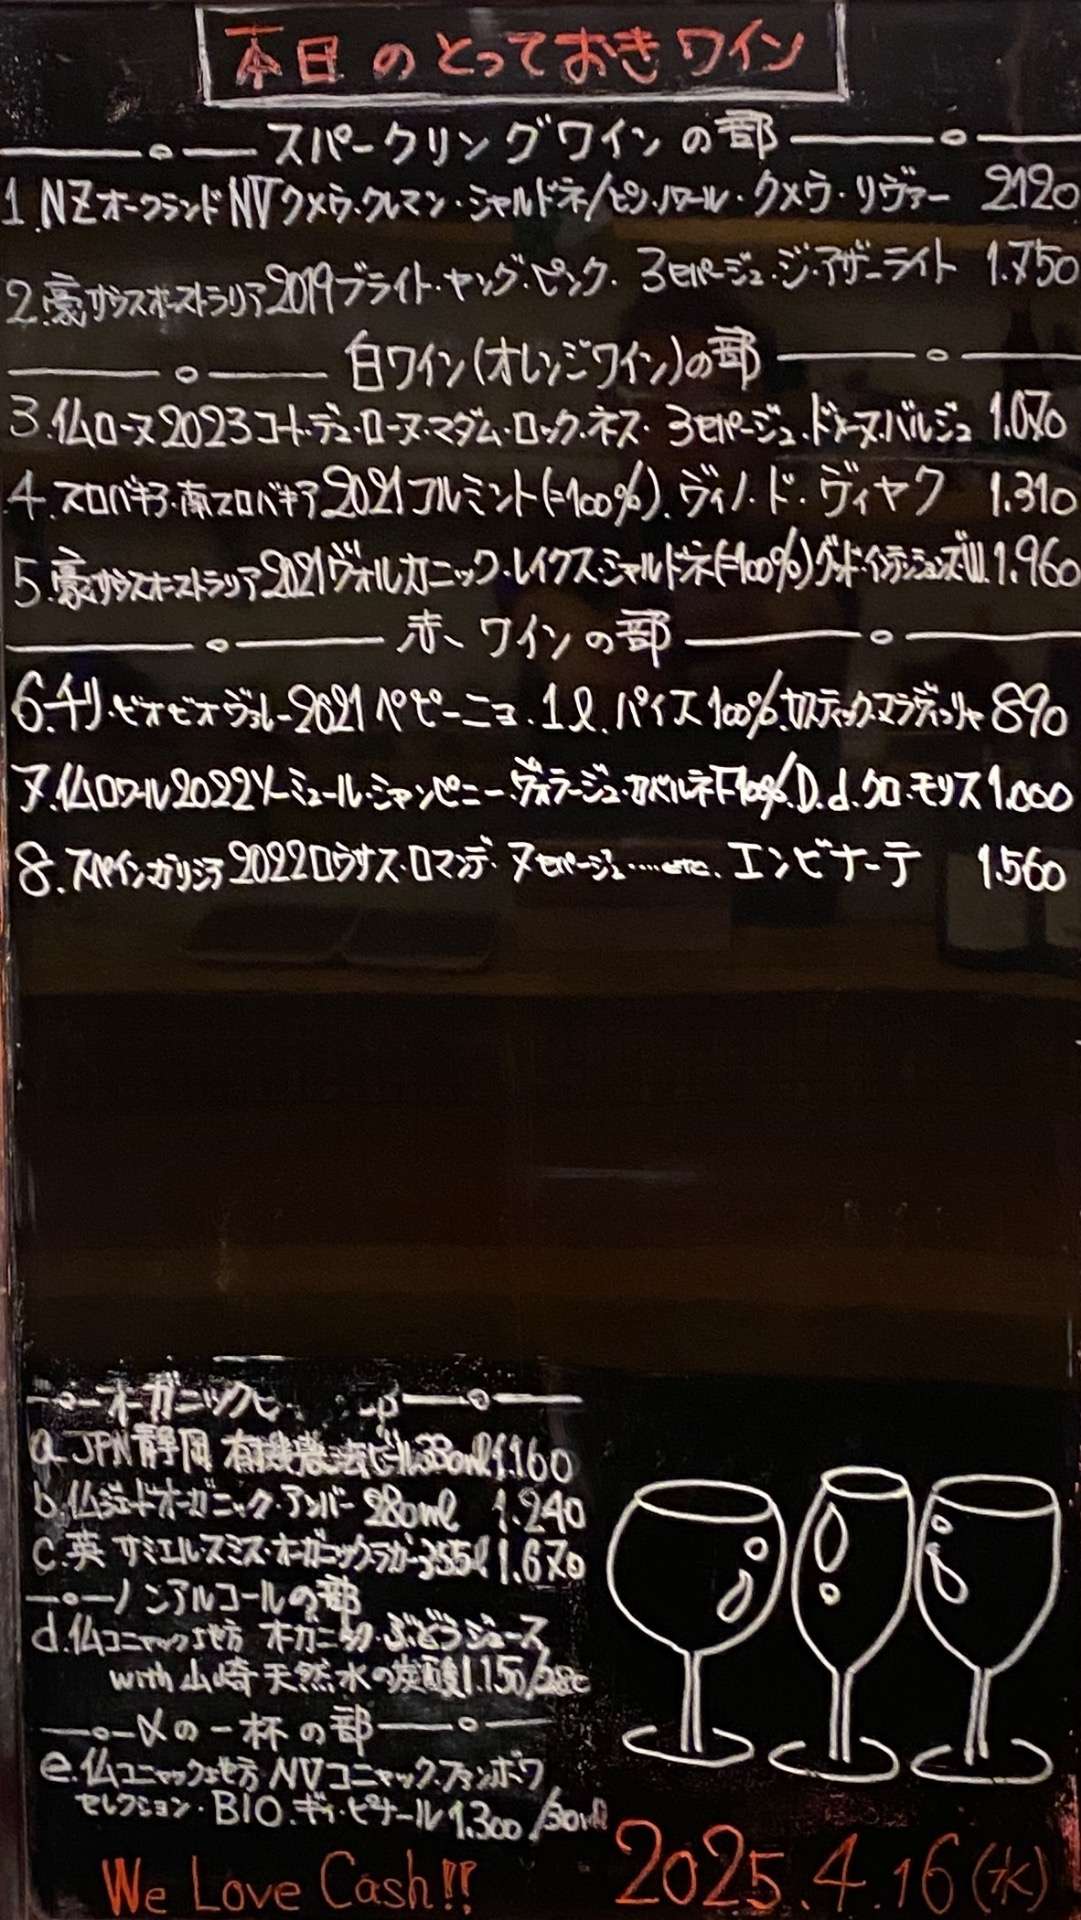 本日のとっておきワイン
スパークリングワインの部
1.NZオークランドNVクメウ・クレマン・シャルドネ/ピノ・ノワール・クメウ・リヴァー 2120
2.豪サウスオーストラリア2019ブライト・ヤング・ピンク・3セパージュ・ジ・アザーライト 1.750
白ワイン(オレンジワイン)の部
3.仏ローヌ2023コート・デュ・ローヌ・マダム・ロック・ネス・3セパージュ・ドメーヌ・バルジュ 1.070
4.スロバキア・南スロバキア2021フルミント(=100%)、ヴィノ・ド・ヴィヤク 1.310
5.豪サウスオーストラリア2021ヴォルカニック・レイクス・シャルドネ(=100%) 1.960
赤ワインの部
6.チリ・ビオビオヴァレー2021ペピーニョ・1ℓ.パイス100% 890
7.仏ロワール2022ソーミュール・シャンピニー・ヴォラージュ・カベルネF100%.D.d.クロ・モリス1.000
8.スペインガリシア2022ロウサス・ロマンデ・7セパージュ……etc.エンビナーテ 1.560
オーガニックビ
a.JPN静岡 有機農法ビール330ml1.160
b.仏ジェードオーガニック・アンバー 280ml 1.240
c.英 サミエルスミス・オーガニックラガー355l1.670
ノンアルコールの部
d.仏コニャック地方 オーガニック・ぶどうジュース
with山崎天然水の炭酸1.150/
〆の一杯の部
e.仏コニャック地方NVコニャック・ファンボワ
セレクション・BIO.ギィ・ピナール1.300/30ml
We Love Cash!!
2025.4.16(水)